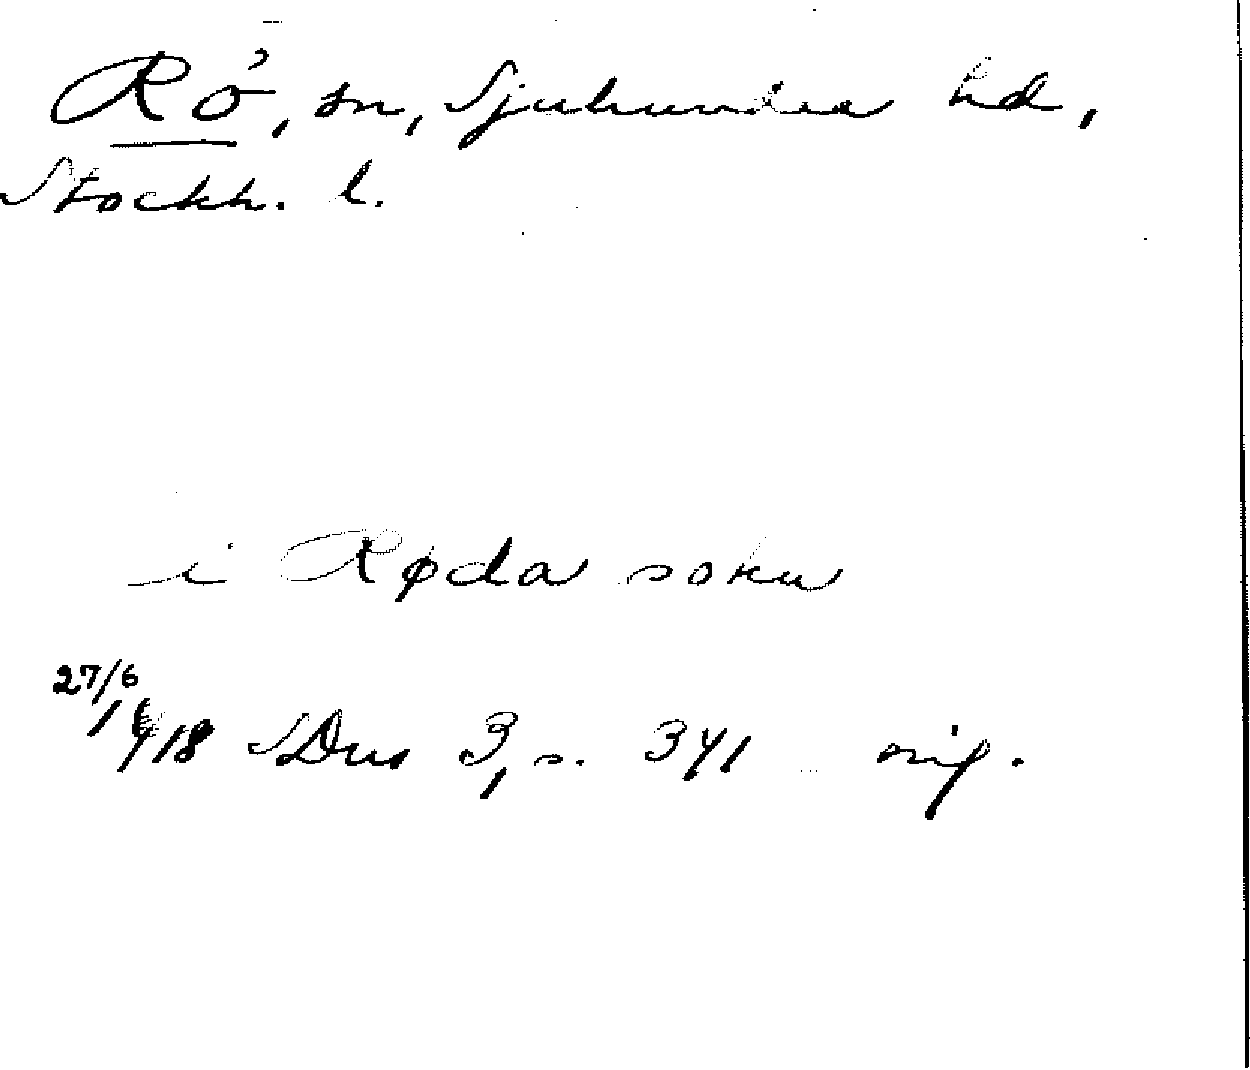 Rö, sn, Sjuhundra hd,
Stockh. l.
i Røda sokn
27/6
1418 SDns 3, s. 341 orig.